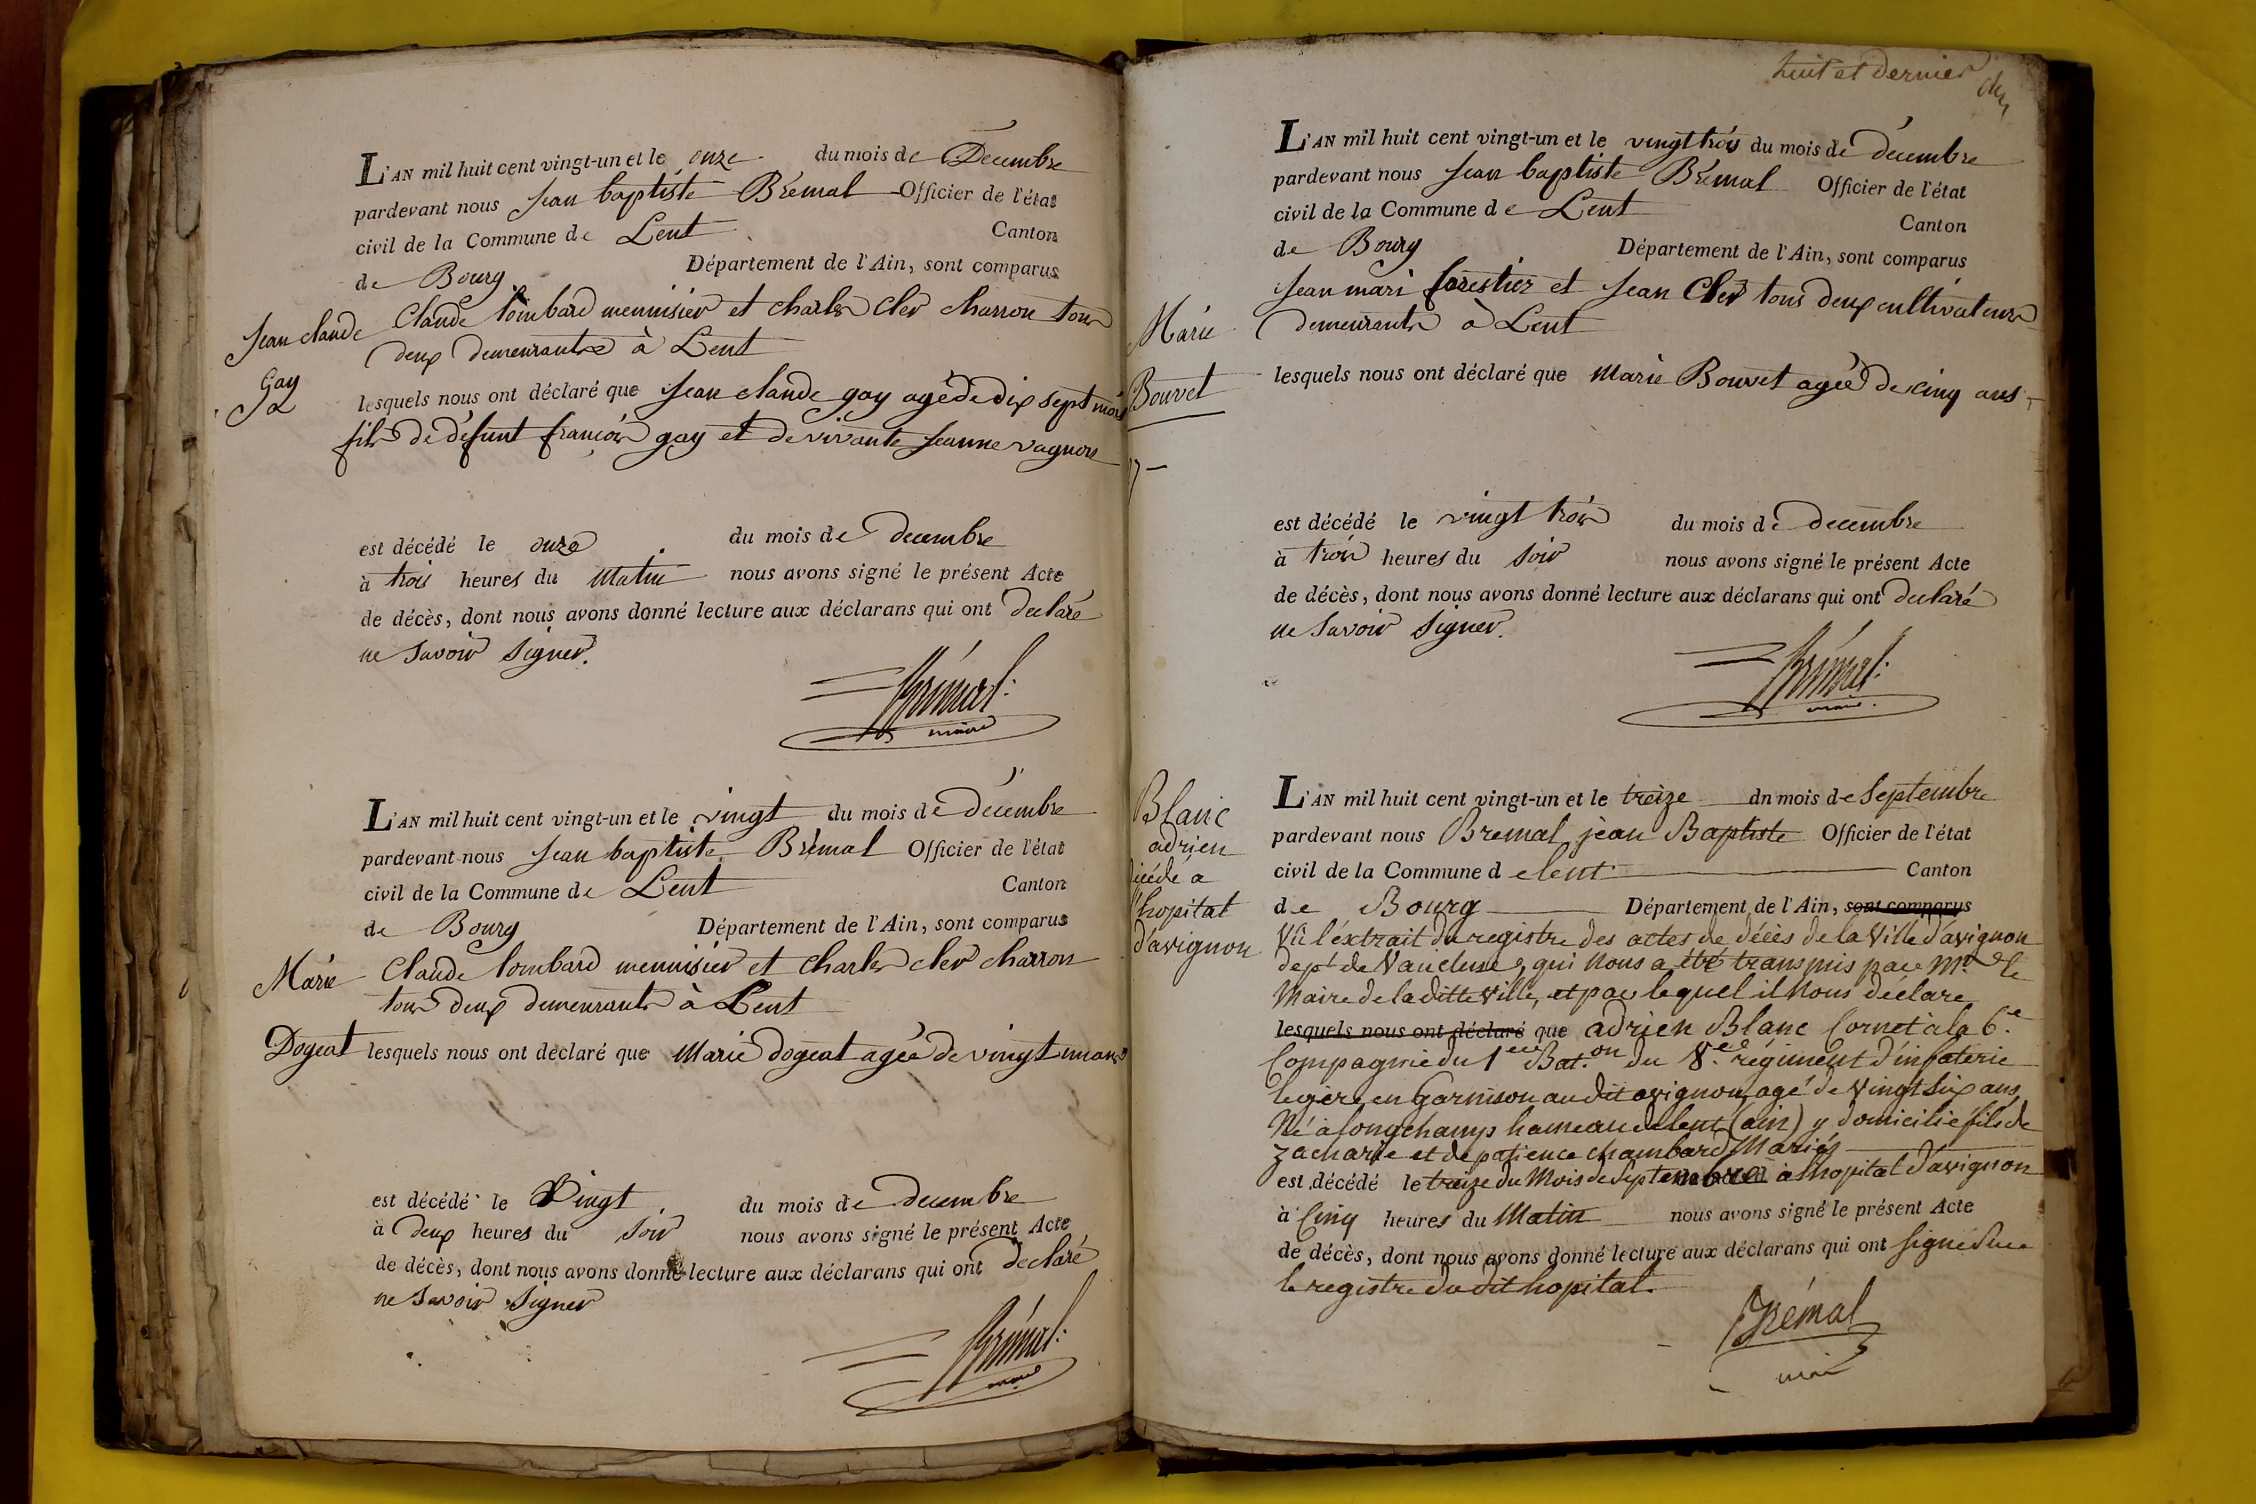 L'AN mil huit cent vingt-un et le onze du mois de Décembre
pardevant nous Jean baptiste Brémal Officier de l'état
civil de la Commune de Lent Canton
de Bourg Département de l'Ain, sont comparus
Jean claude
Gay
Claude lombard menuisier et charles Cler charron tous
deux demeurants à Lent
lesquels nous ont déclaré que Jean claude gay agé de dix sept mois
fils de défunt françois gay et de vivante Jeanne vagnon
est décédé le onze du mois de decembre
à trois heures du Matin nous avons signé le présent Acte
de décès, dont nous avons donné lecture aux déclarans qui ont declaré
ne savoir signer.
Brémal
maire
L'AN mil huit cent vingt-un et le vingt du mois de décembre
pardevant nous Jean baptiste Brémal Officier de l'état
civil de la Commune de Lent Canton
de Bourg Département de l'Ain, sont comparus
Marie
Dogeat
Claude lombard menuisier et charles cler charron
tous deux demeurants à Lent
lesquels nous ont déclaré que Marie dogeat agée de vingt un ans
est décédé le Vingt du mois de decembre
à deux heures du soir nous avons signé le présent Acte
de décès, dont nous avons donné lecture aux déclarans qui ont declaré
ne savoir signer
Brémal
maire
huit et dernier
L'AN mil huit cent vingt-un et le vingt trois du mois de décembre
pardevant nous Jean baptiste Brémal Officier de l'état
civil de la Commune de Lent Canton
de Bourg Département de l'Ain, sont comparus
Marie
Bouvet
Jean mari forestier et Jean Cler tous deux cultivateurs
demeurants à Lent
lesquels nous ont déclaré que Marie Bouvet agée de cinq ans
est décédé le vingt trois du mois de decembre
à trois heures du soir nous avons signé le présent Acte
de décès, dont nous avons donné lecture aux déclarans qui ont declaré
ne savoir signer.
Brémal
maire
Blanc
adrien
à
l'hopital
d'avignon
L'AN mil huit cent vingt-un et le treize du mois de Septembre
pardevant nous Bremal jean Baptiste Officier de l'état
civil de la Commune de lent Canton
de Bourg Département de l'Ain, sont comparus
Vû l'extrait du registre des actes de décès de la Ville d'avignon
dept de Vaucluse, qui nous a été transmis par Mr le
Maire de la ditte Ville, et par lequel il nous déclare
lesquels nous ont déclaré que adrien Blanc Cornet à la 6.e
Compagnie du 1er Bat.on du 8.e régiment d'infaterie
legère en Garnison au dit avignon, agé de Vingt six ans
Né à longchamp hameau de lent (ain) y domicilié fils de
zacharie et de patience chambard Mariés
est décédé le treize du Mois de Septembre à l'hopital d'avignon
à Cinq heures du Matin nous avons signé le présent Acte
de décès, dont nous avons donné lecture aux déclarans qui ont signé sur
le registre du dit hopital.
Brémal